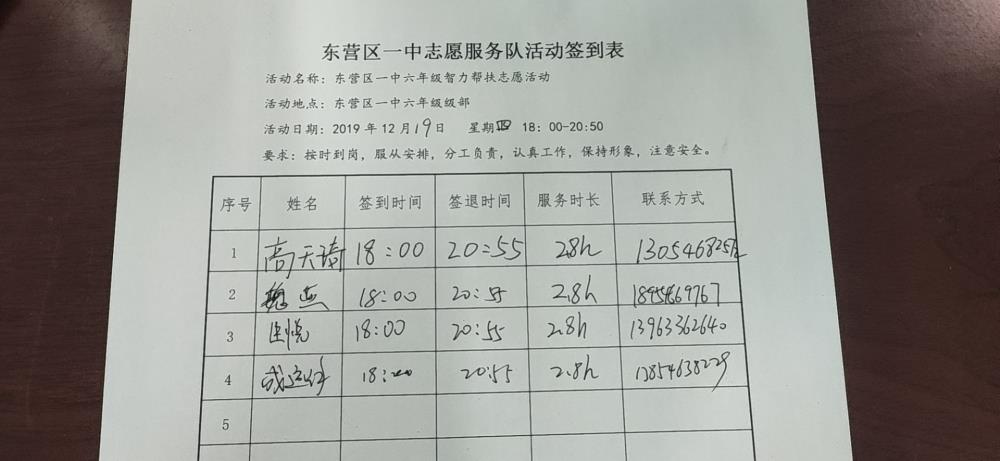 东营区一中志愿服务队活动签到表
活动名称：东营区一中六年级智力帮扶志愿活动
活动地点：东营区一中六年级级部
活动日期：2019 年 12 月 19 日 星期四 18：00-20:50
要求：按时到岗，服从安排，分工负责，认真工作，保持形象，注意安全。
序号 姓名 签到时间 签退时间 服务时长 联系方式
1 高天琦 18：00 20:55 2.8h
2 18:00 20:55 2.8h
3 18:00 20:55 2.8h 13963362640
4 18:00 20:55 2.8h 13854638229
5